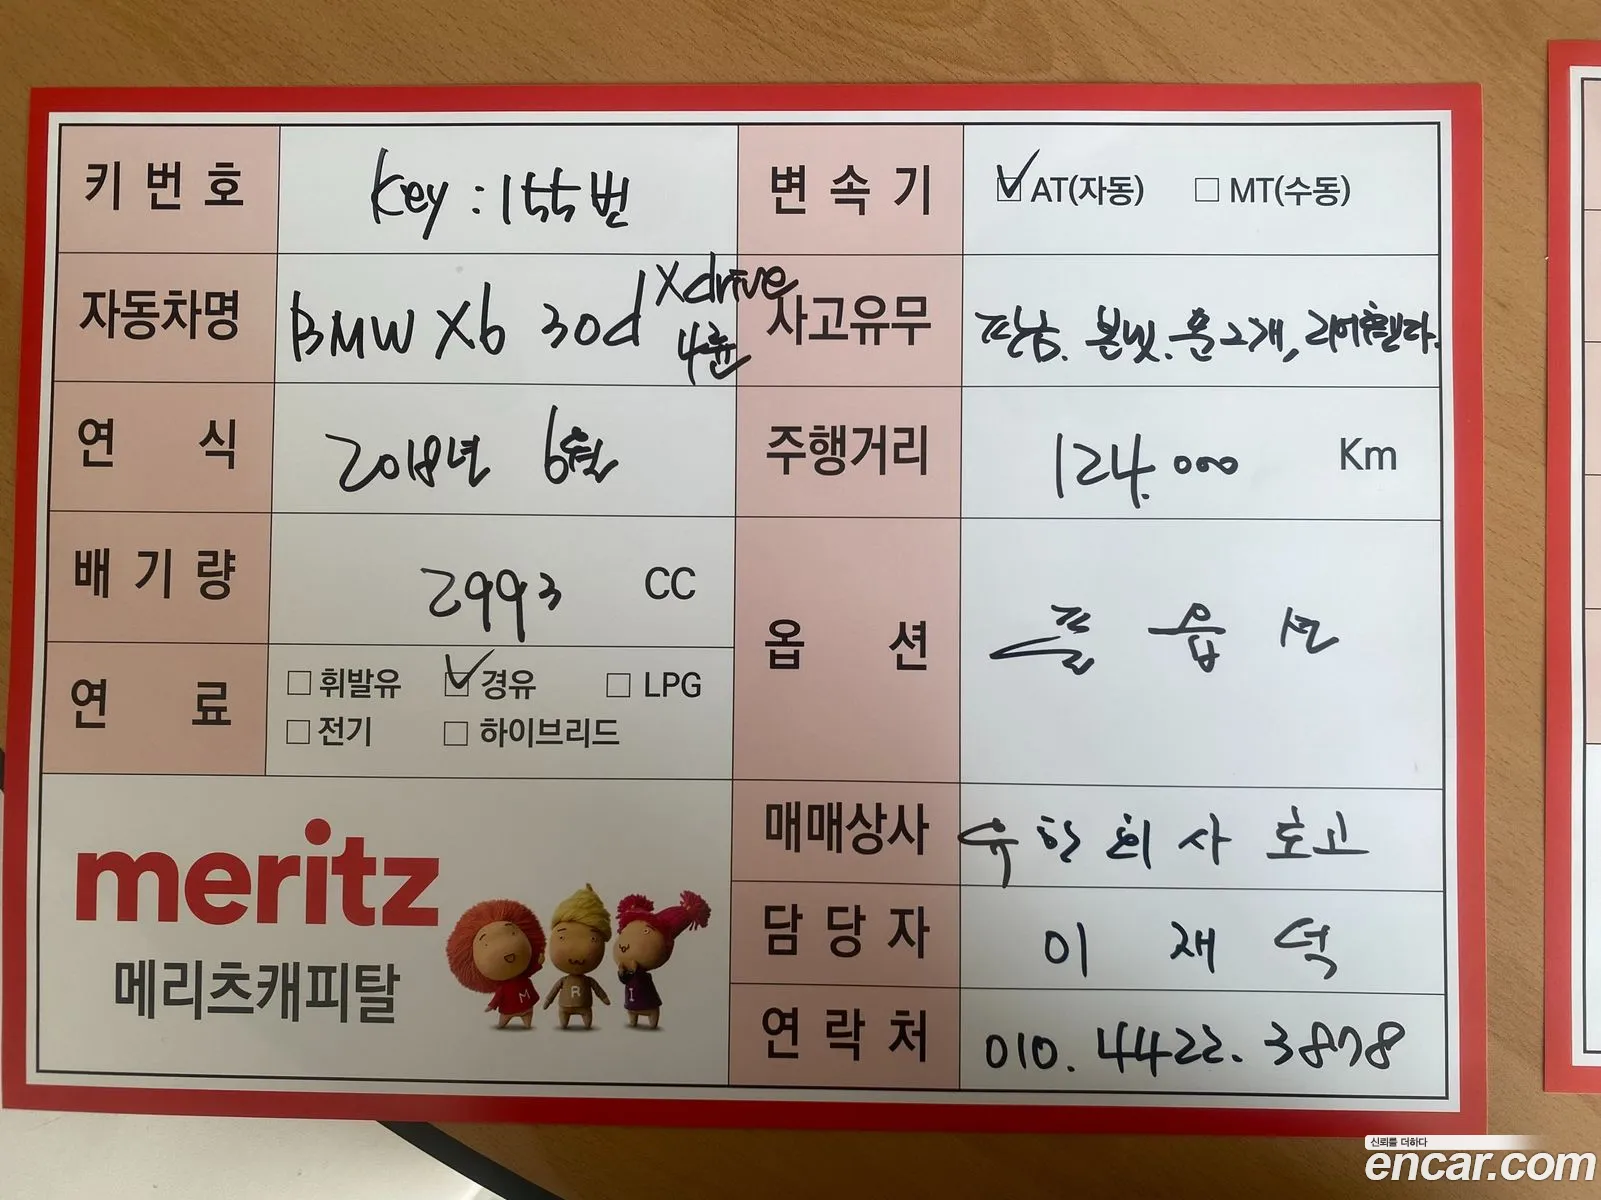 키 번 호
Key : 155번
변 속 기
AT(자동)
MT(수동)
자동차명
BMW X6 30d Xdrive
4륜
사고유무
판금. 본넷. 문2개,
연 식
2018년 6월
주행거리
124.000 Km
배 기 량
2993 CC
옵 션
풀 옵 션
연 료
휘발유
경유
LPG
전기
하이브리드
meritz
메리츠캐피탈
M R I
매매상사
유한회사 호고
담 당 자
이 재 덕
연 락 처
010. 4422. 3878
신뢰를 더하다
encar.com